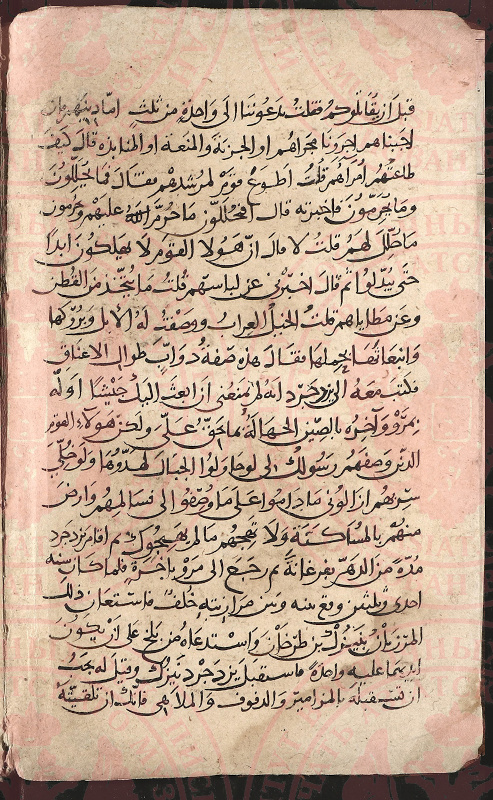 قبل ان يقاتلوكم قلت يدعوننا الى واحدة من ثلث اما دينهم فان
اجبناهم اجرونا مجراهم او الجزية والمنعة او المنابذة قال كيف
طاعتهم امراهم قلت اطوع قوم لمرشدهم فقال فما يحللون
وما يحرمون فاخبرته قال افيحللون ما حرم الله عليهم ويحرمون
ما حلل لهم قلت لا قال ان هولا القوم لا يهلكون ابدا
حتى يبدلوا ثم قال اخبرني عن لباسهم قلت ما يتخذ من القطن
وعن مطاياهم قلت الخيل العراب ووصفت له الابل وبروكها
وانبعاثها بحملها فقال هذه صفة دواب طوال الاعناق
فكتب معه الى يزدجرد انه لم يمنعني ان ابعث اليك جيشا اوله
بمرو وآخره بالصين الجهالة بما يحق علي ولكن هولاء القوم
الذين وصفهم رسولك لي لو حاولوا الجبال لهدوها ولو خلي
سربهم ازالوني ما داموا على ما وصفوا لي فسالمهم وارض
منهم بالمساكنة ولا تهجهم ما لم يهيجوك ثم اقام يزدجرد
مدة من الدهر بفرغانة ثم رجع الى مرو باخرة فلما كان سنه
احدى وثلثين وقع بينه وبين مرازبته خلف فاستعان ذلك
المرزبان بنيزك بن طرخان واستدعاه من بلخ على ان يكون
ايديهما عليه واحدة فاستقبل يزدجرد نيزك وقيل له يجب
ان تستقبله بالمزامير والدفوف والملاهي فانك ان تلقيته